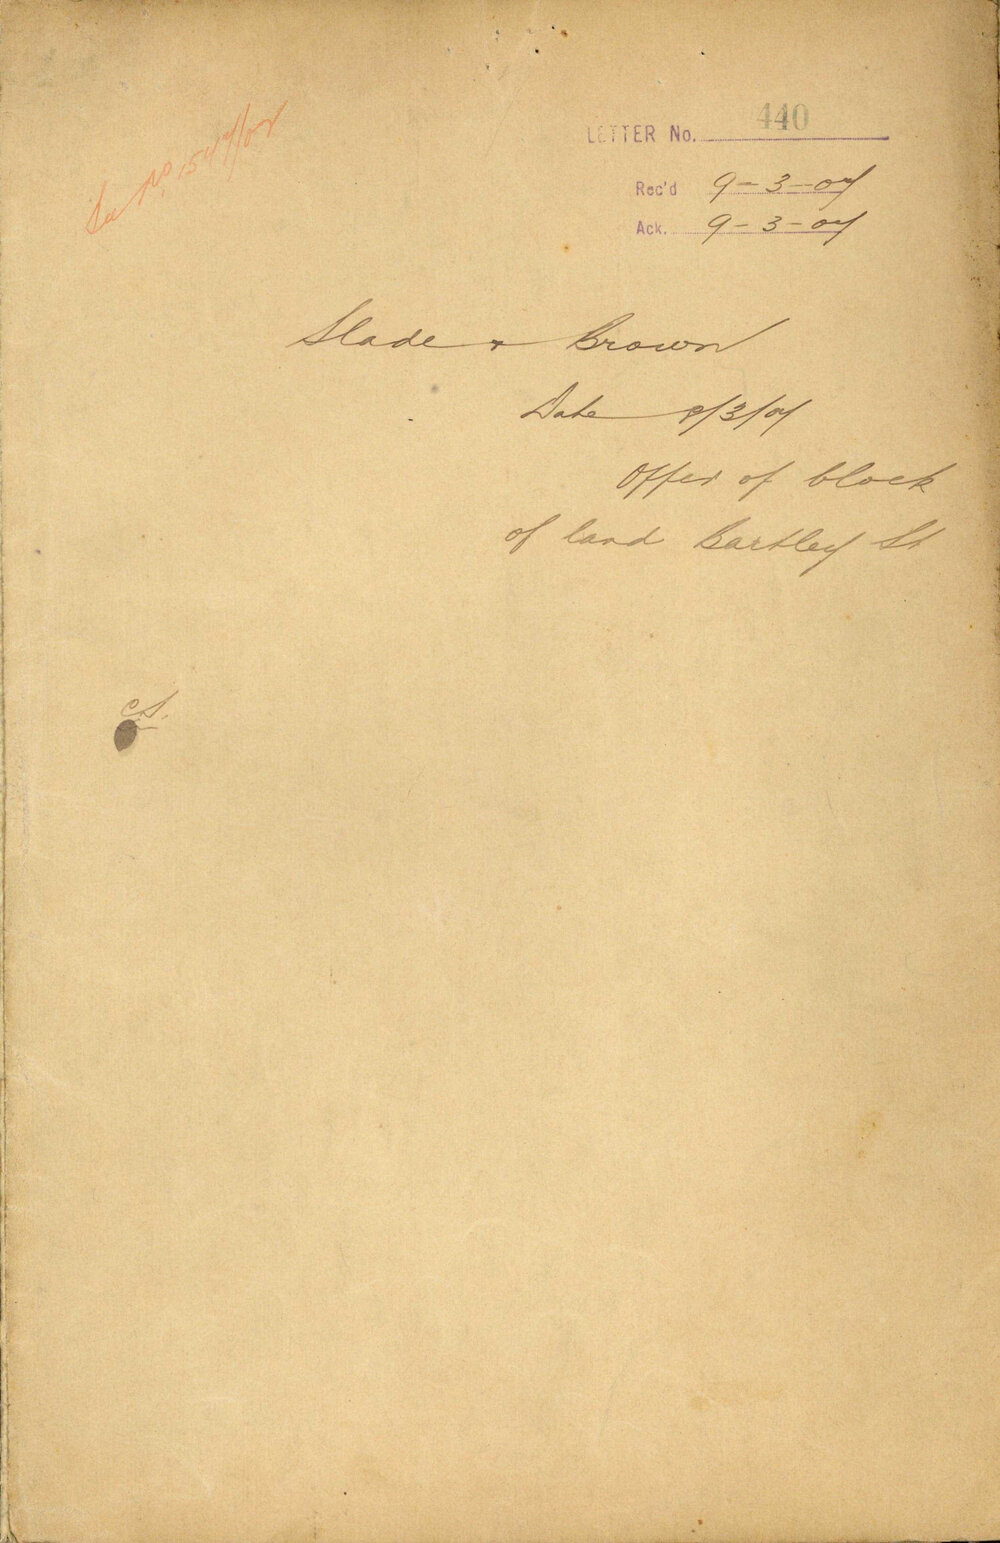 See No. 1547/07
LETTER No. 440
Rec'd 9-3-07
Ack. 9-3-07
Slade & Brown
Date 8/3/07
Offer of block
of land Bartley St
C.S.